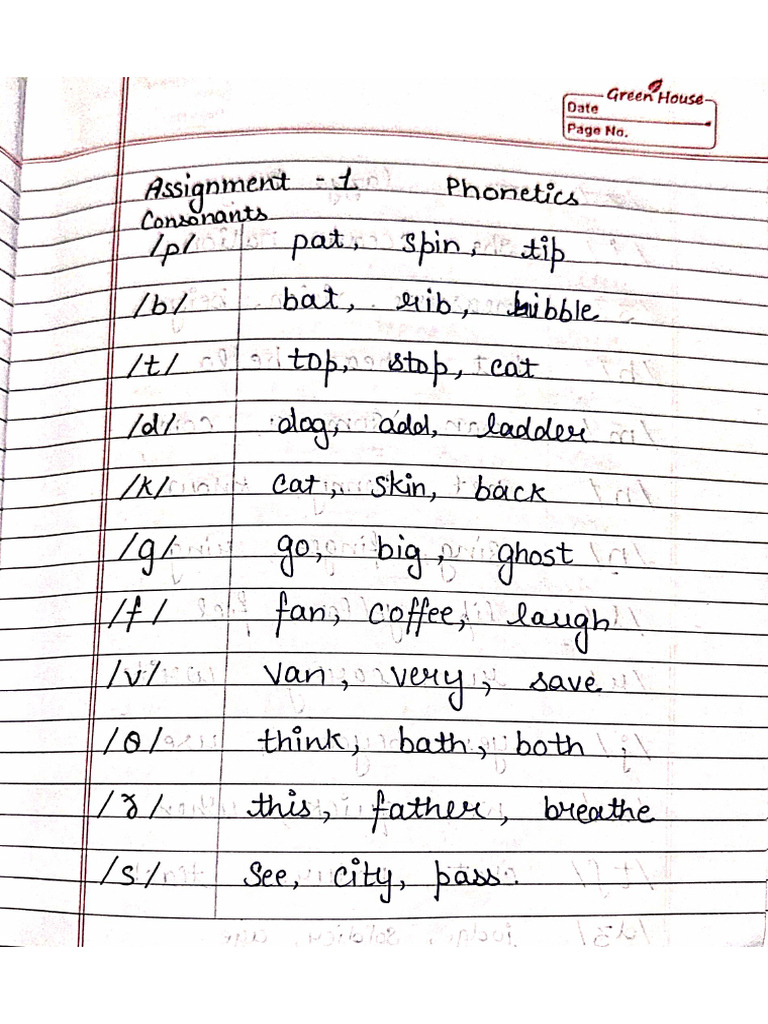 Green House
Date
Page No.
Assignment - 1 Phonetics
Consonants
/p/ pat, spin, tip
/b/ bat, rib, bubble
/t/ top, stop, cat
/d/ dog, add, ladder
/k/ cat, skin, back
/g/ go, big, ghost
/f/ fan, coffee, laugh
/v/ van, very, save
/θ/ think, bath, both
/ð/ this, father, breathe
/s/ see, city, pass.